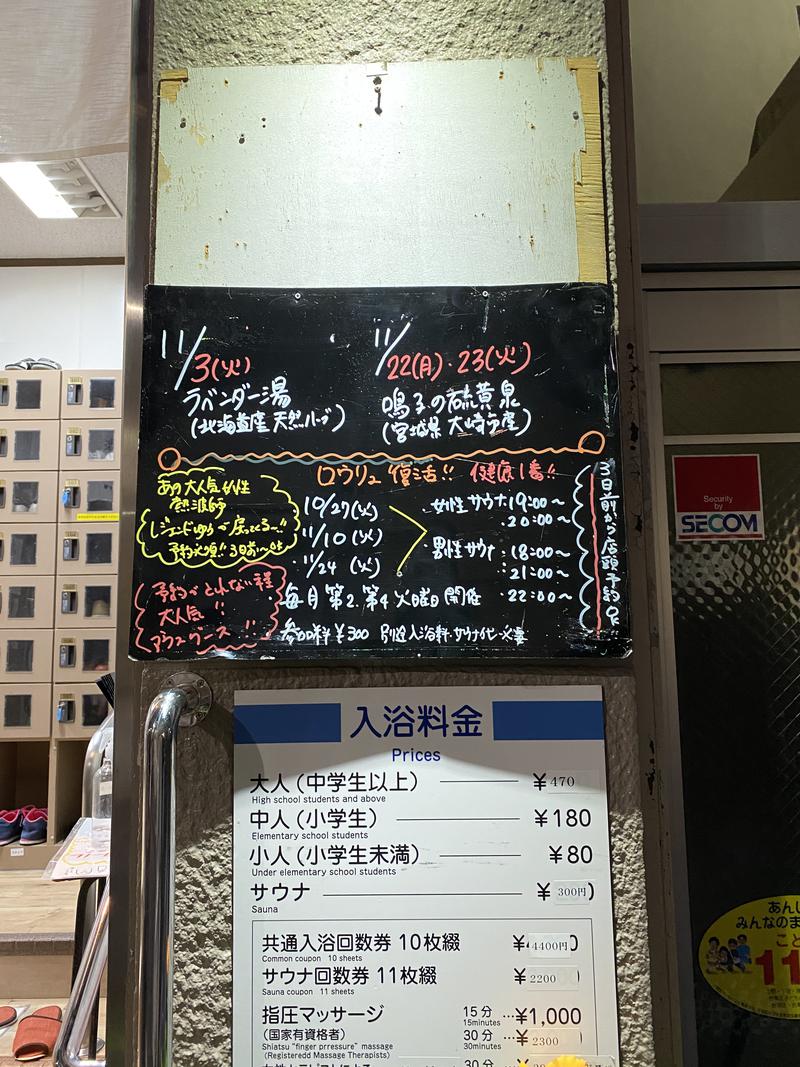 11/3(火)
ラベンダー湯
(北海道産 天然ハーブ)
11/22(月)・23(火)
鳴子の硫黄泉
(宮城県 大崎市産)
ロウリュ 復活!! 健康1番!!
あの大人気女性
熱波師
レジェンドゆうが戻ってくる〜!!
予約必須!! 3日前〜
予約がとれない程
大人気!!
10/27(火)
11/10(火)
11/24(火)
女性サウナ 19:00〜
20:00〜
男性サウナ 18:00〜
21:00〜
22:00〜
毎月 第2. 第4 火曜日 開催
参加料¥300 別途入浴料・サウナ代必要
3日前から店頭予約OK
Security
by
SECOM
入浴料金
Prices
大人(中学生以上) ¥470
High school students and above
中人(小学生) ¥180
Elementary school students
小人(小学生未満) ¥80
Under elementary school students
サウナ ¥300円)
Sauna
共通入浴回数券 10枚綴 ¥4400円
Common coupon 10 sheets
サウナ回数券 11枚綴 ¥2200
Sauna coupon 11 sheets
指圧マッサージ 15分…¥1,000
15minutes
(国家有資格者) 30分…¥2300
Shiatsu "finger prressure" massage 30minutes
(Registeredd Massage Therapists)
30分
あんし
みんなのま
こと
11